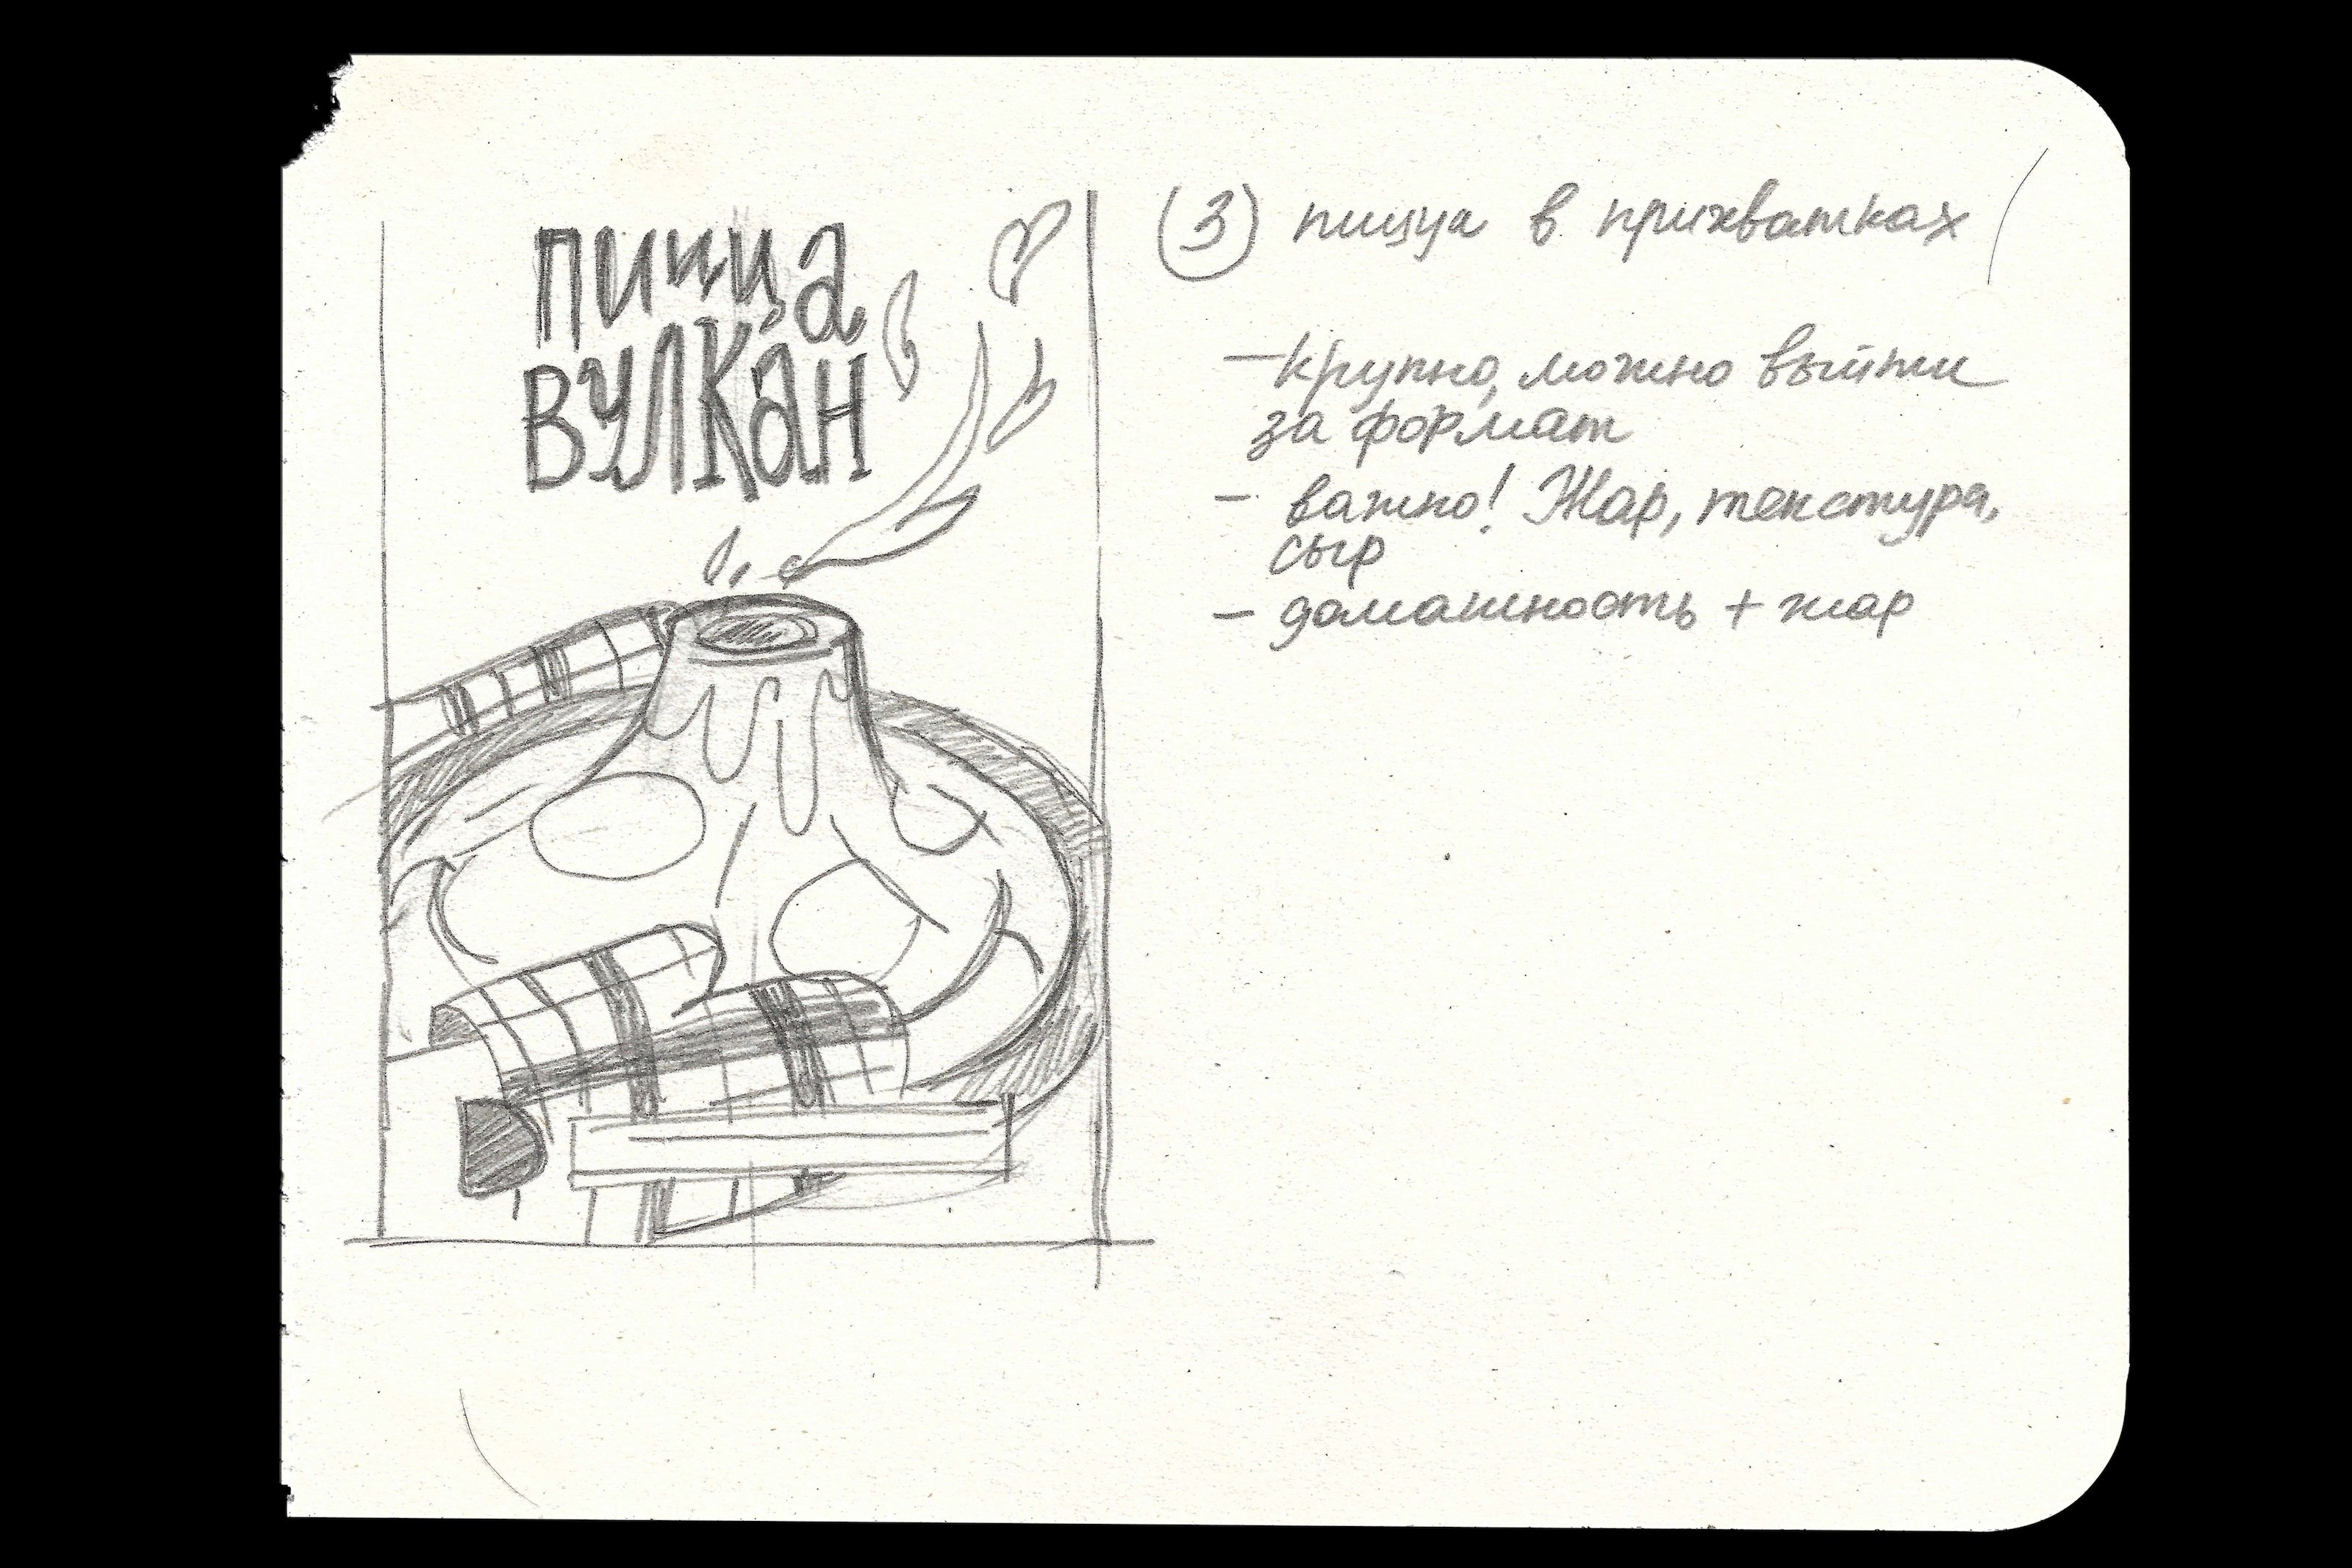 пицца
вулкан
3 пицца в прихватках
— крупно, можно выйти
за формат
- важно! Жар, текстура,
сыр
- домашность + жар